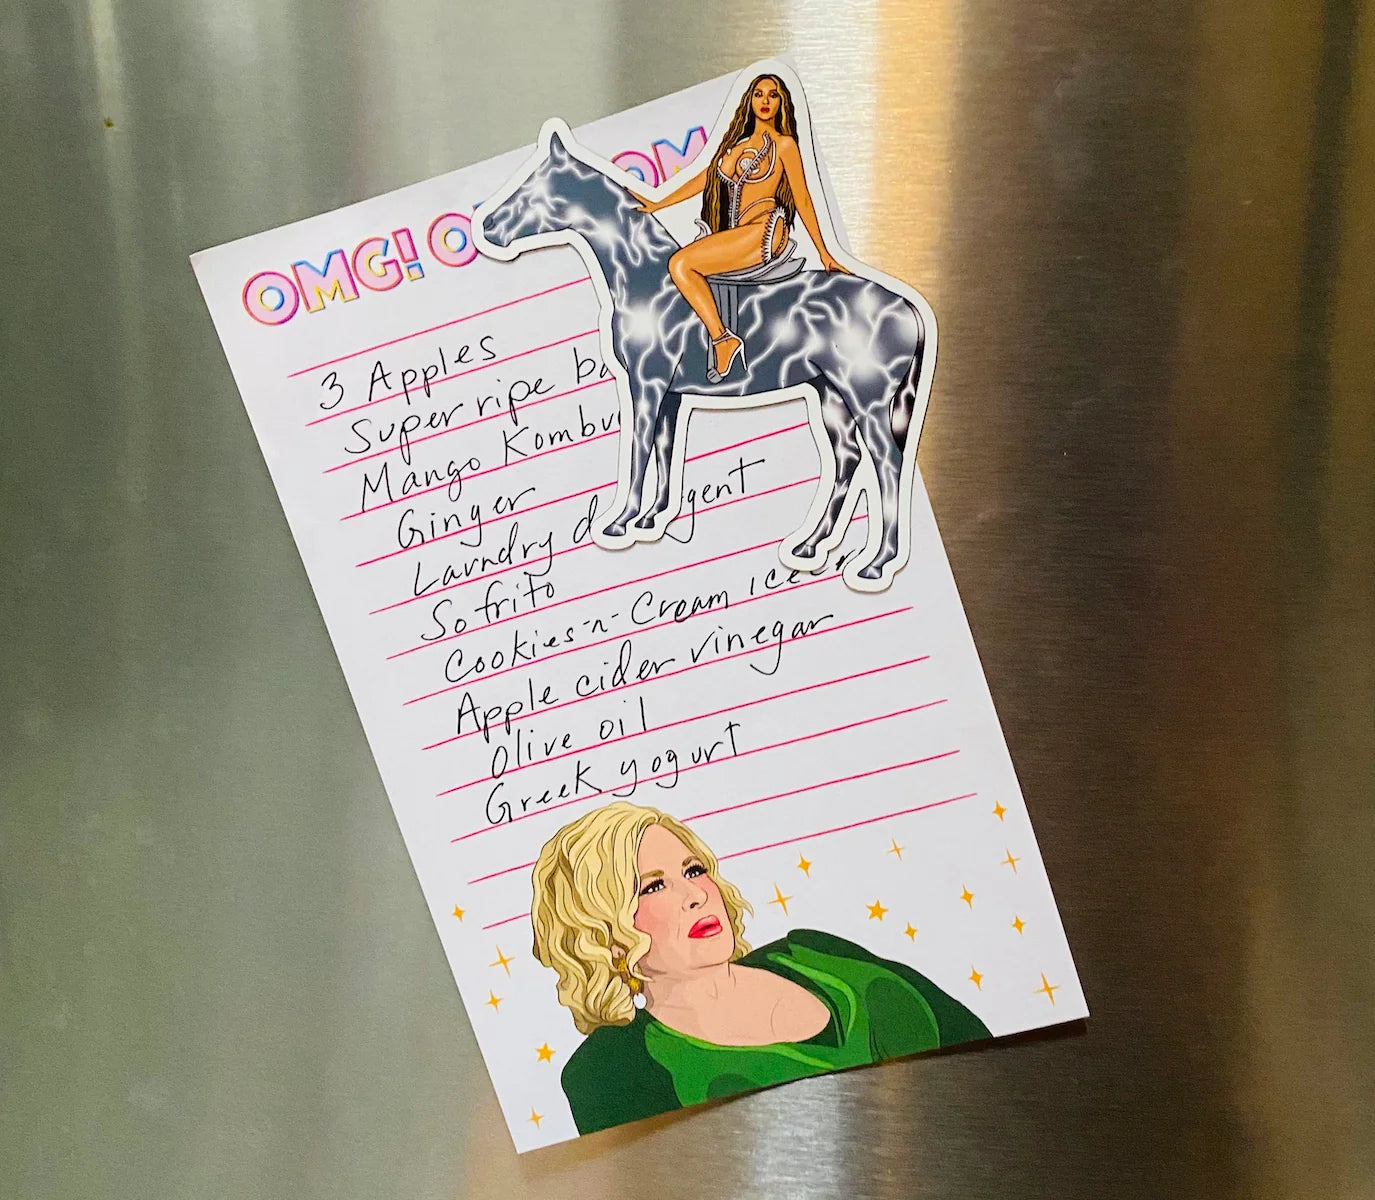 OMG! O OM
3 Apples
Super ripe ba
Mango Kombu
Ginger
Laundry d gent
Sofrito
Cookies-n-Cream ice cr
Apple cider vinegar
Olive oil
Greek yogurt